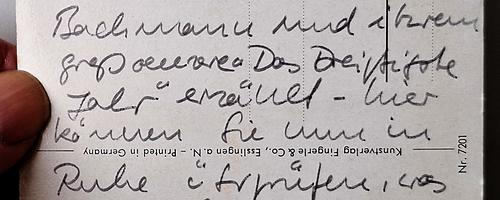 Bachmann und ihrem
grandioseren "Das Dreißigste
Jahr" erzählt - hier
können Sie nun in
Kunstverlag Fingerle & Co., Esslingen a. N. – Printed in Germany
Nr. 7201
Ruhe überprüfen, was